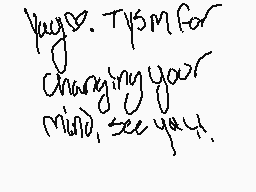 Yay♡. TYSM for
changing your
mind, see you!!